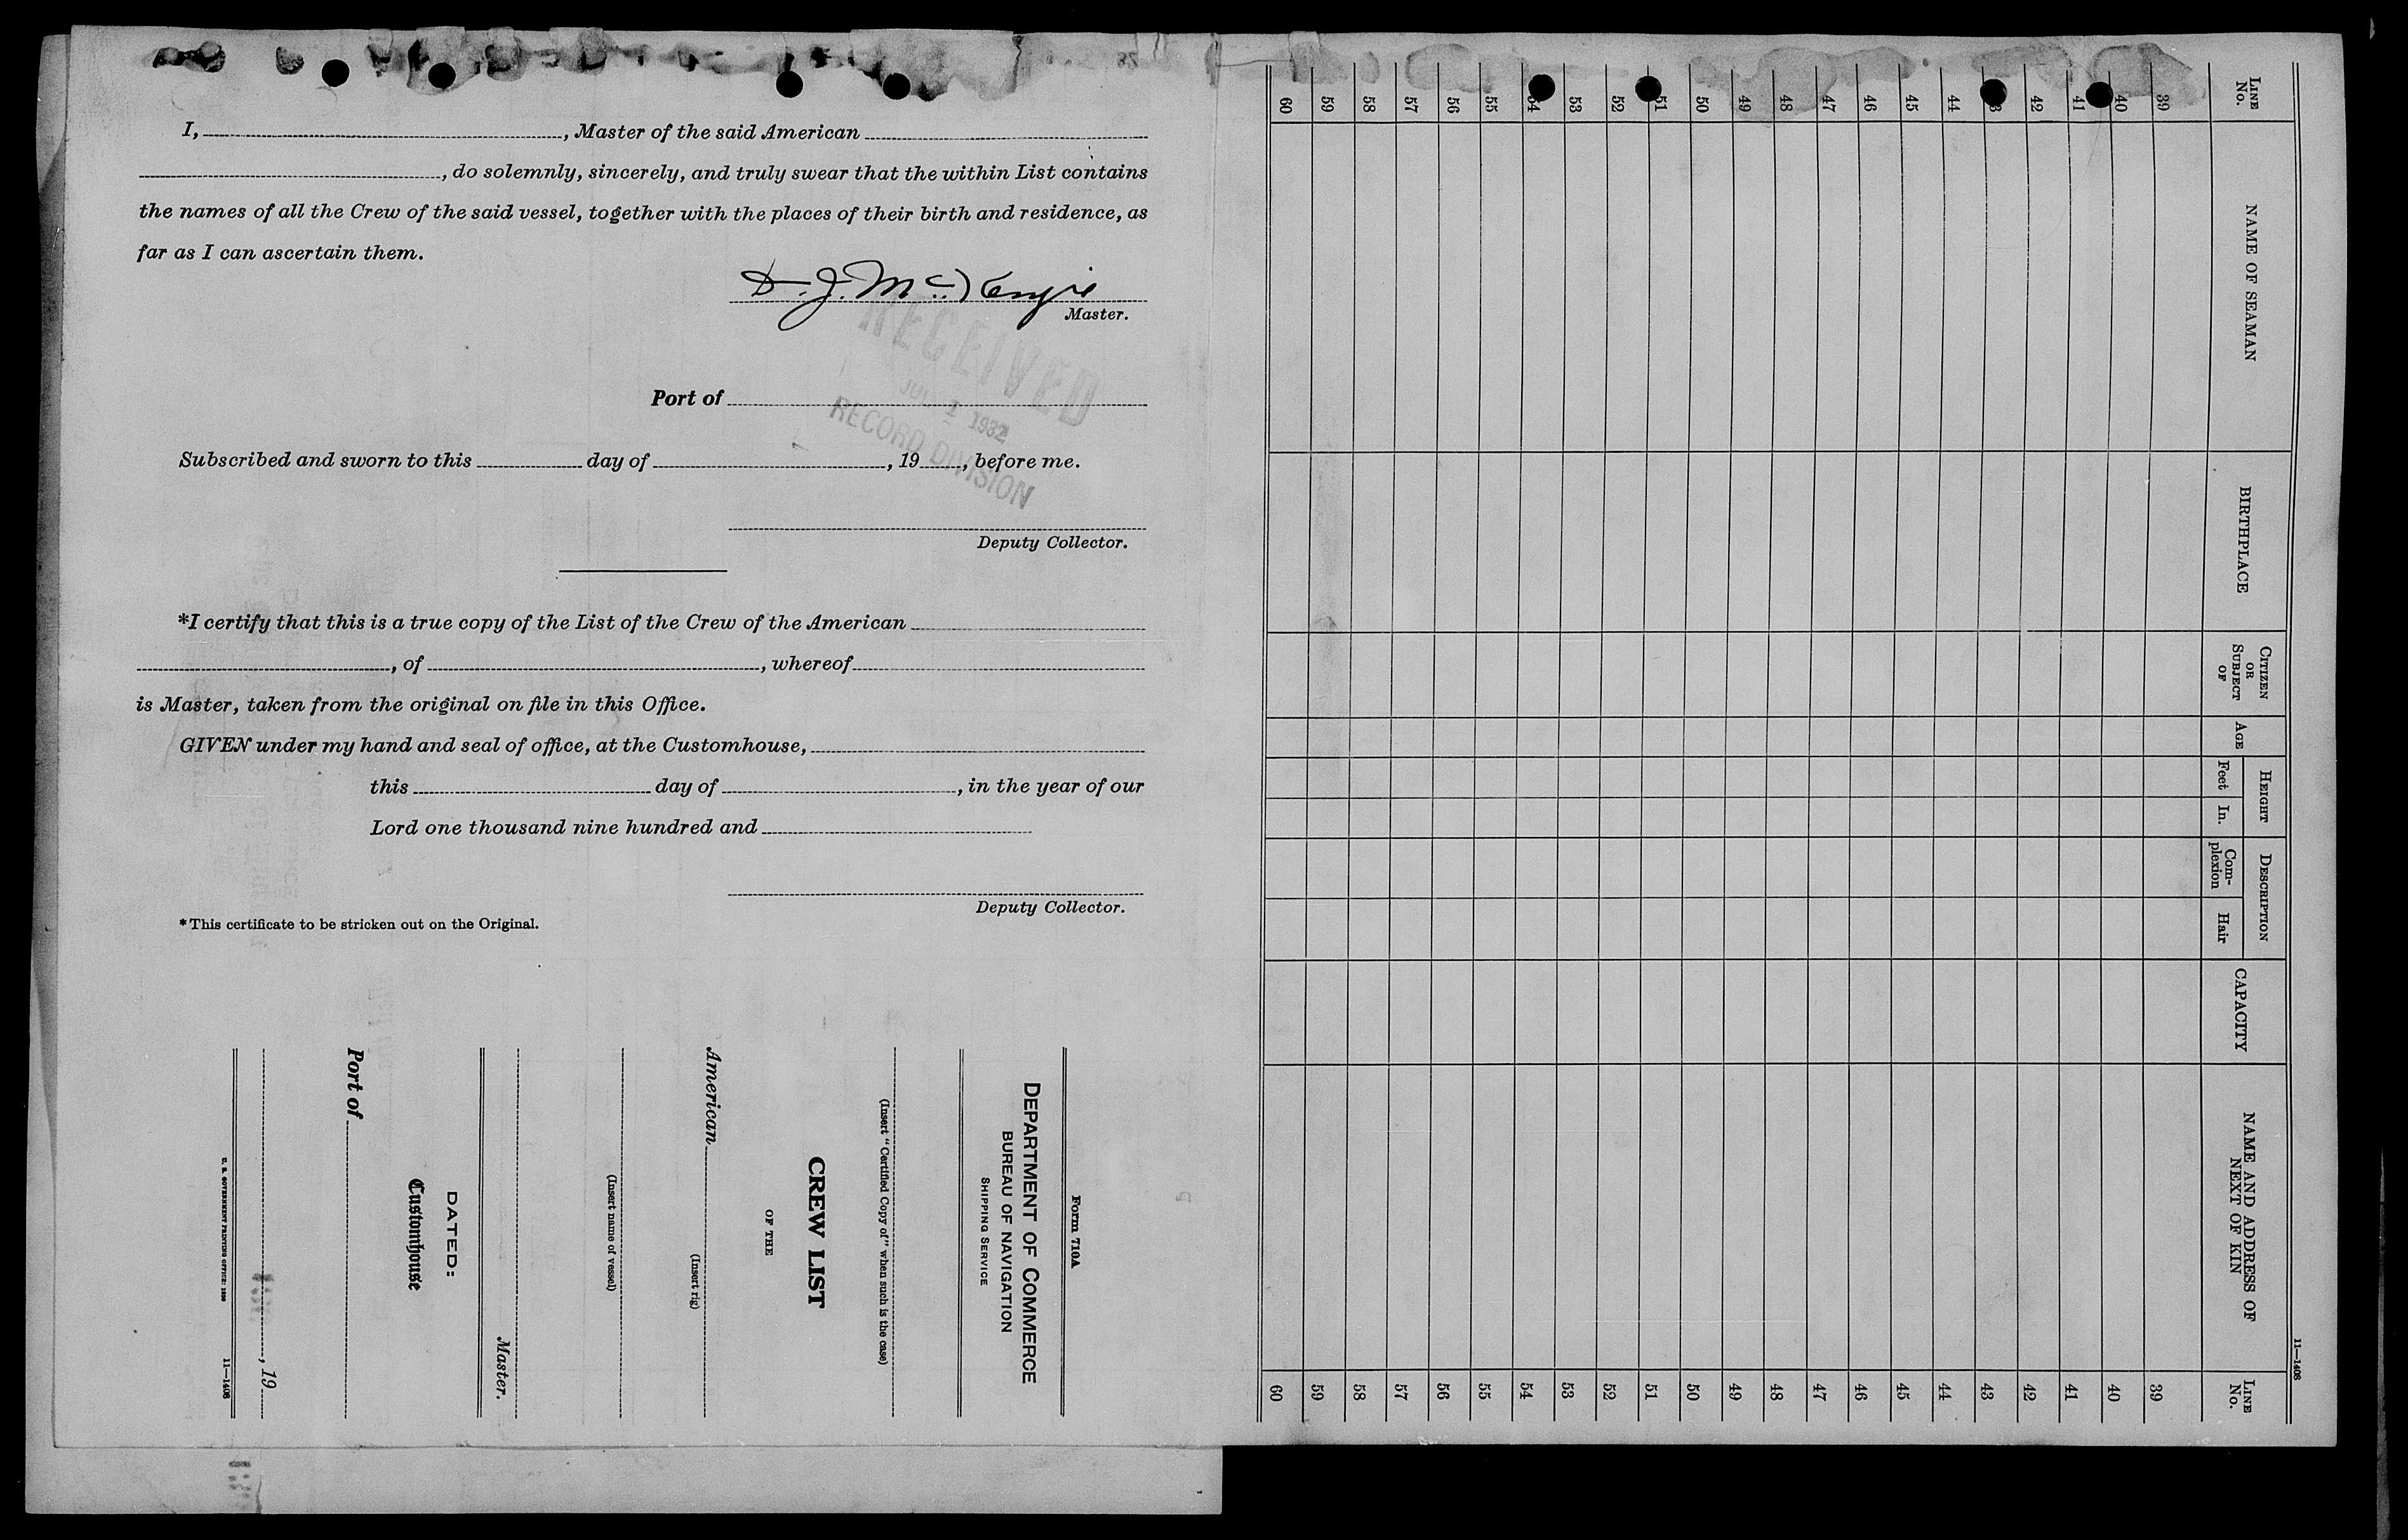 I, , Master of the said American
, do solemnly, sincerely, and truly swear that the within List contains
the names of all the Crew of the said vessel, together with the places of their birth and residence, as
far as I can ascertain them.
D. J. McKenzie
Master.
RECEIVED
JUL 1 1932
RECORD DIVISION
Port of
Subscribed and sworn to this day of , 19 , before me.
Deputy Collector.
*I certify that this is a true copy of the List of the Crew of the American
, of , whereof
is Master, taken from the original on file in this Office.
GIVEN under my hand and seal of office, at the Customhouse,
this day of , in the year of our
Lord one thousand nine hundred and
Deputy Collector.
*This certificate to be stricken out on the Original.
Form 710A
DEPARTMENT OF COMMERCE
BUREAU OF NAVIGATION
SHIPPING SERVICE
(Insert "Certified Copy of" when such is the case)
CREW LIST
OF THE
American
(Insert rig)
(Insert name of vessel)
Master.
DATED:
Customhouse
Port of
, 19
U. S. GOVERNMENT PRINTING OFFICE: 1930 11—1408
11—1408
LINE NO. NAME OF SEAMAN BIRTHPLACE CITIZEN OR SUBJECT OF AGE HEIGHT Feet In. DESCRIPTION Complexion Hair CAPACITY NAME AND ADDRESS OF NEXT OF KIN LINE NO.
39 39
40 40
41 41
42 42
43
44 44
45 45
46 46
47 47
48 48
49 49
50 50
51 51
52 52
53 53
54 54
55 55
56 56
57 57
58 58
59 59
60 60